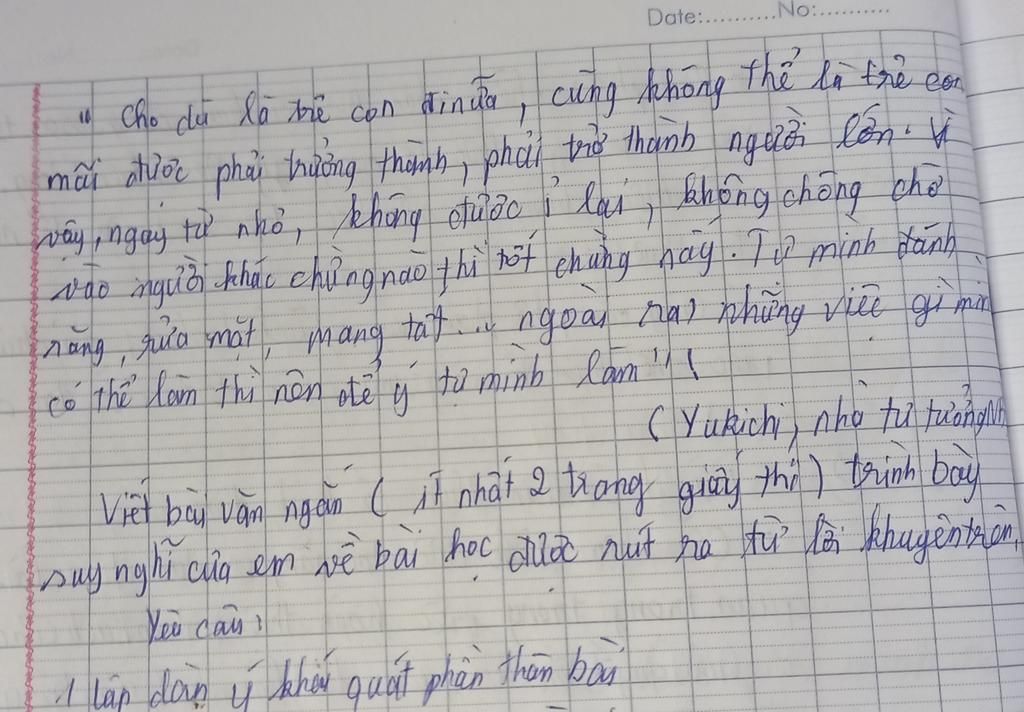 Date:..........No:..........
" Cho dù là trẻ con đi nữa, cũng không thể là trẻ con
mãi được phải trưởng thành, phải trở thành người lớn. Vì
vậy, ngay từ nhỏ, không được ỉ lại, không chông chờ
vào người khác chừng nào thì tốt chừng nấy. Tự mình đánh
răng, rửa mặt, mang tất... ngoài ra, những việc gì mìn
có thể làm thì nên để ý tự mình làm "!
( Yukichi, nhà tư tưởng Nh
Viết bài văn ngắn ( ít nhất 2 trang giấy thi ) trình bày
suy nghĩ của em về bài học được rút ra từ lời khuyên trên.
Yêu cầu:
1 lập dàn ý khái quát phần thân bài